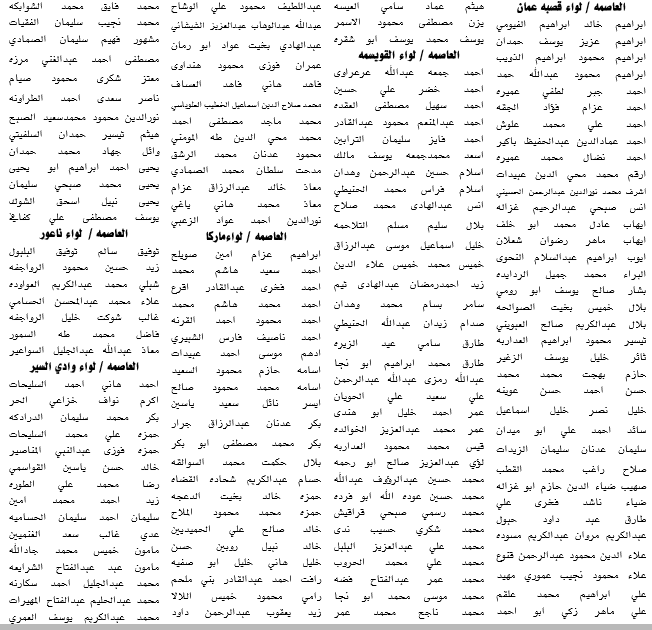 العاصمه / لواء قصبه عمان
ابراهيم خالد ابراهيم الفيومي
ابراهيم عزيز يوسف حمدان
ابراهيم محمود ابراهيم الذويب
ابراهيم محمود عبدالله حمد
احمد جبر لطفي عميره
احمد عزام فؤاد الجقه
احمد علي محمد علوش
احمد عمادالدين عبدالحفيظ باكير
احمد نضال محمد عميره
ارقم محمد محي الدين عبيدات
اشرف محمد نورالدين عبدالرحمن الحسيني
انس صبحي عبدالرحيم غزاله
ايهاب عادل محمد ابو خلف
ايهاب ماهر رضوان شعلان
ايوب ابراهيم عبدالسلام النحوى
البراء محمد جميل الردايده
بشار صالح يوسف ابو رومي
بلال خميس بخيت الصوالحه
بلال عبدالكريم صالح العبويني
تيسير محمود ابراهيم العداربه
ثائر خليل يوسف الزغير
حازم بهجت محمد محمد
حسن احمد حسن عوينه
خليل نصر خليل اسماعيل
سائد احمد علي ابو ميدان
سليمان عدنان سليمان الزيدات
صلاح راغب محمد القطب
صهيب ضياء الدين حازم ابو غزاله
ضياء ناشد فخرى علي
طارق عبد داود حبول
عبدالكريم مروان عبدالكريم مسوده
علاء الدين محمود عبدالرحمن قنوع
علاء محمود نجيب عموري مهيد
علي ابراهيم محمد علقم
علي ماهر زكي ابو احمد
هيثم عماد سامي العيسه
يزن مصطفى محمود الاسمر
يوسف محمد يوسف ابو شقره
العاصمه / لواء القويسمه
احمد جمعه عبدالله عرعراوى
احمد خضر علي حسين
احمد سهيل مصطفى العقده
احمد عبدالمنعم محمود عبدالقادر
احمد فايز سليمان الترابين
اسعد محمدجمعه يوسف مالك
اسلام حسين عبدالرحمن وهدان
اسلام فراس محمد الحنيطي
انس عبدالهادى محمد صلاح
بلال سليم مسلم التلاحمه
خليل اسماعيل موسى عبدالرزاق
خميس محمد خميس علاء الدين
زيد احمدرمضان عبدالهادي تيم
سامر بسام محمد وهدان
صدام زيدان عبدالله الحنيطي
طارق سامي عيد الزيره
طارق محمد ابراهيم ابو نجا
عبدالله رمزى عبدالله عبدالرحمن
علي سعيد علي الحويان
عمر احمد خليل ابو هندى
عمر محمد عبدالعزيز الخوالده
قيس محمد محمود العداربه
لؤي عبدالعزيز صالح ابو رحمه
محمد حسين عبدالرؤوف عبدالله
محمد حسين عوده الله ابو فرده
محمد رسمي صبحي قراقيش
محمد شكري حسيب ندى
محمد علي عبدالعزيز البلبل
محمد علي محمد الحروب
محمد عمر عبدالفتاح فضه
محمد موسى محمد ابو نجا
محمد ناجح محمد عمر
عبداللطيف محمود علي الوشاح
عبدالله عبدالوهاب عبدالعزيز الشيشاني
عبدالهادي بخيت عواد ابو رمان
عمران فوزى محمود هنداوى
فاهد هاني فاهد العساف
محمد صلاح الدين اسماعيل الخطيب الطوباسي
محمد ماجد مصطفى احمد
محمد محي الدين طه المومني
محمود عدنان محمد الرشق
مدحت سلطان محمد الصمادي
معاذ خالد عبدالرزاق عزام
معاذ محمد هاني ياغي
نورالدين احمد عواد الزعبي
العاصمه / لواءماركا
ابراهيم عزام امين صويلح
احمد سعيد هاشم محمد
احمد فخرى عبدالقادر اقرع
احمد محمد هاشم محمد
احمد محمود احمد القرنه
احمد ناصيف فارس الشبيري
ادهم موسى احمد عبيدات
اسامه حازم محمود السعيد
اسامه محمد محمود صالح
ايسر نائل سعيد ياسين
بكر عدنان عبدالرزاق جرار
بكر محمد مصطفى ابو بكر
بلال حكمت محمد السوالقه
حسام عبدالكريم شحاده القضاه
حمزه خالد بخيت الدعجه
حمزه محمد محمود الملاح
خالد صالح علي الحميديين
خالد نبيل روبين حسن
خليل هاني خليل ابو صفيه
رافت احمد عبدالقادر بني ملحم
رامي محمود خميس اللالا
زيد يعقوب عبدالرحمن داود
محمد فايق محمد الشوابكه
محمد نجيب سليمان الفقيات
مشهور فهيم سليمان الصمادي
مصطفى احمد عبدالغني مرزه
معتز شكري محمود صيام
ناصر سعدى احمد الطراونه
نورالدين محمود محمدسعيد الصبح
هيثم تيسير حمدان السلفيتي
وائل جهاد محمد حمدان
يحيى احمد ابراهيم ابو يحيى
يحيى محمد صبحي سليمان
يحيى نبيل اسحق الشوك
يوسف مصطفى علي كفافي
العاصمه / لواء ناعور
توفيق سالم توفيق البلبول
زيد حسين محمود الرواجفه
شبلي محمد عبدالكريم العواوده
علاء محمد عبدالمحسن الحسامي
غالب شوكت خليل الرواجفه
فاضل محمد طه السمور
معاذ عبدالله عبدالجليل السواعير
العاصمه / لواء وادي السير
احمد هاني احمد السليحات
اكرم نواف خزاعي الحر
بكر محمد سليمان الدرادكه
حمزه علي محمد السليحات
حمزه فوزى عبدالنبي المناصير
خالد حسن ياسين القواسمي
رضا محمد علي الطوره
زيد احمد محمد امين
سليمان احمد سليمان الحساميه
عدي غالب سعد الغنميين
مامون خميس محمد جادالله
مامون عبد عبدالفتاح الشرايعه
محمد عبدالجليل احمد سكارنه
محمد عبدالحليم عبدالفتاح المهيرات
محمد عبدالكريم يوسف العمري